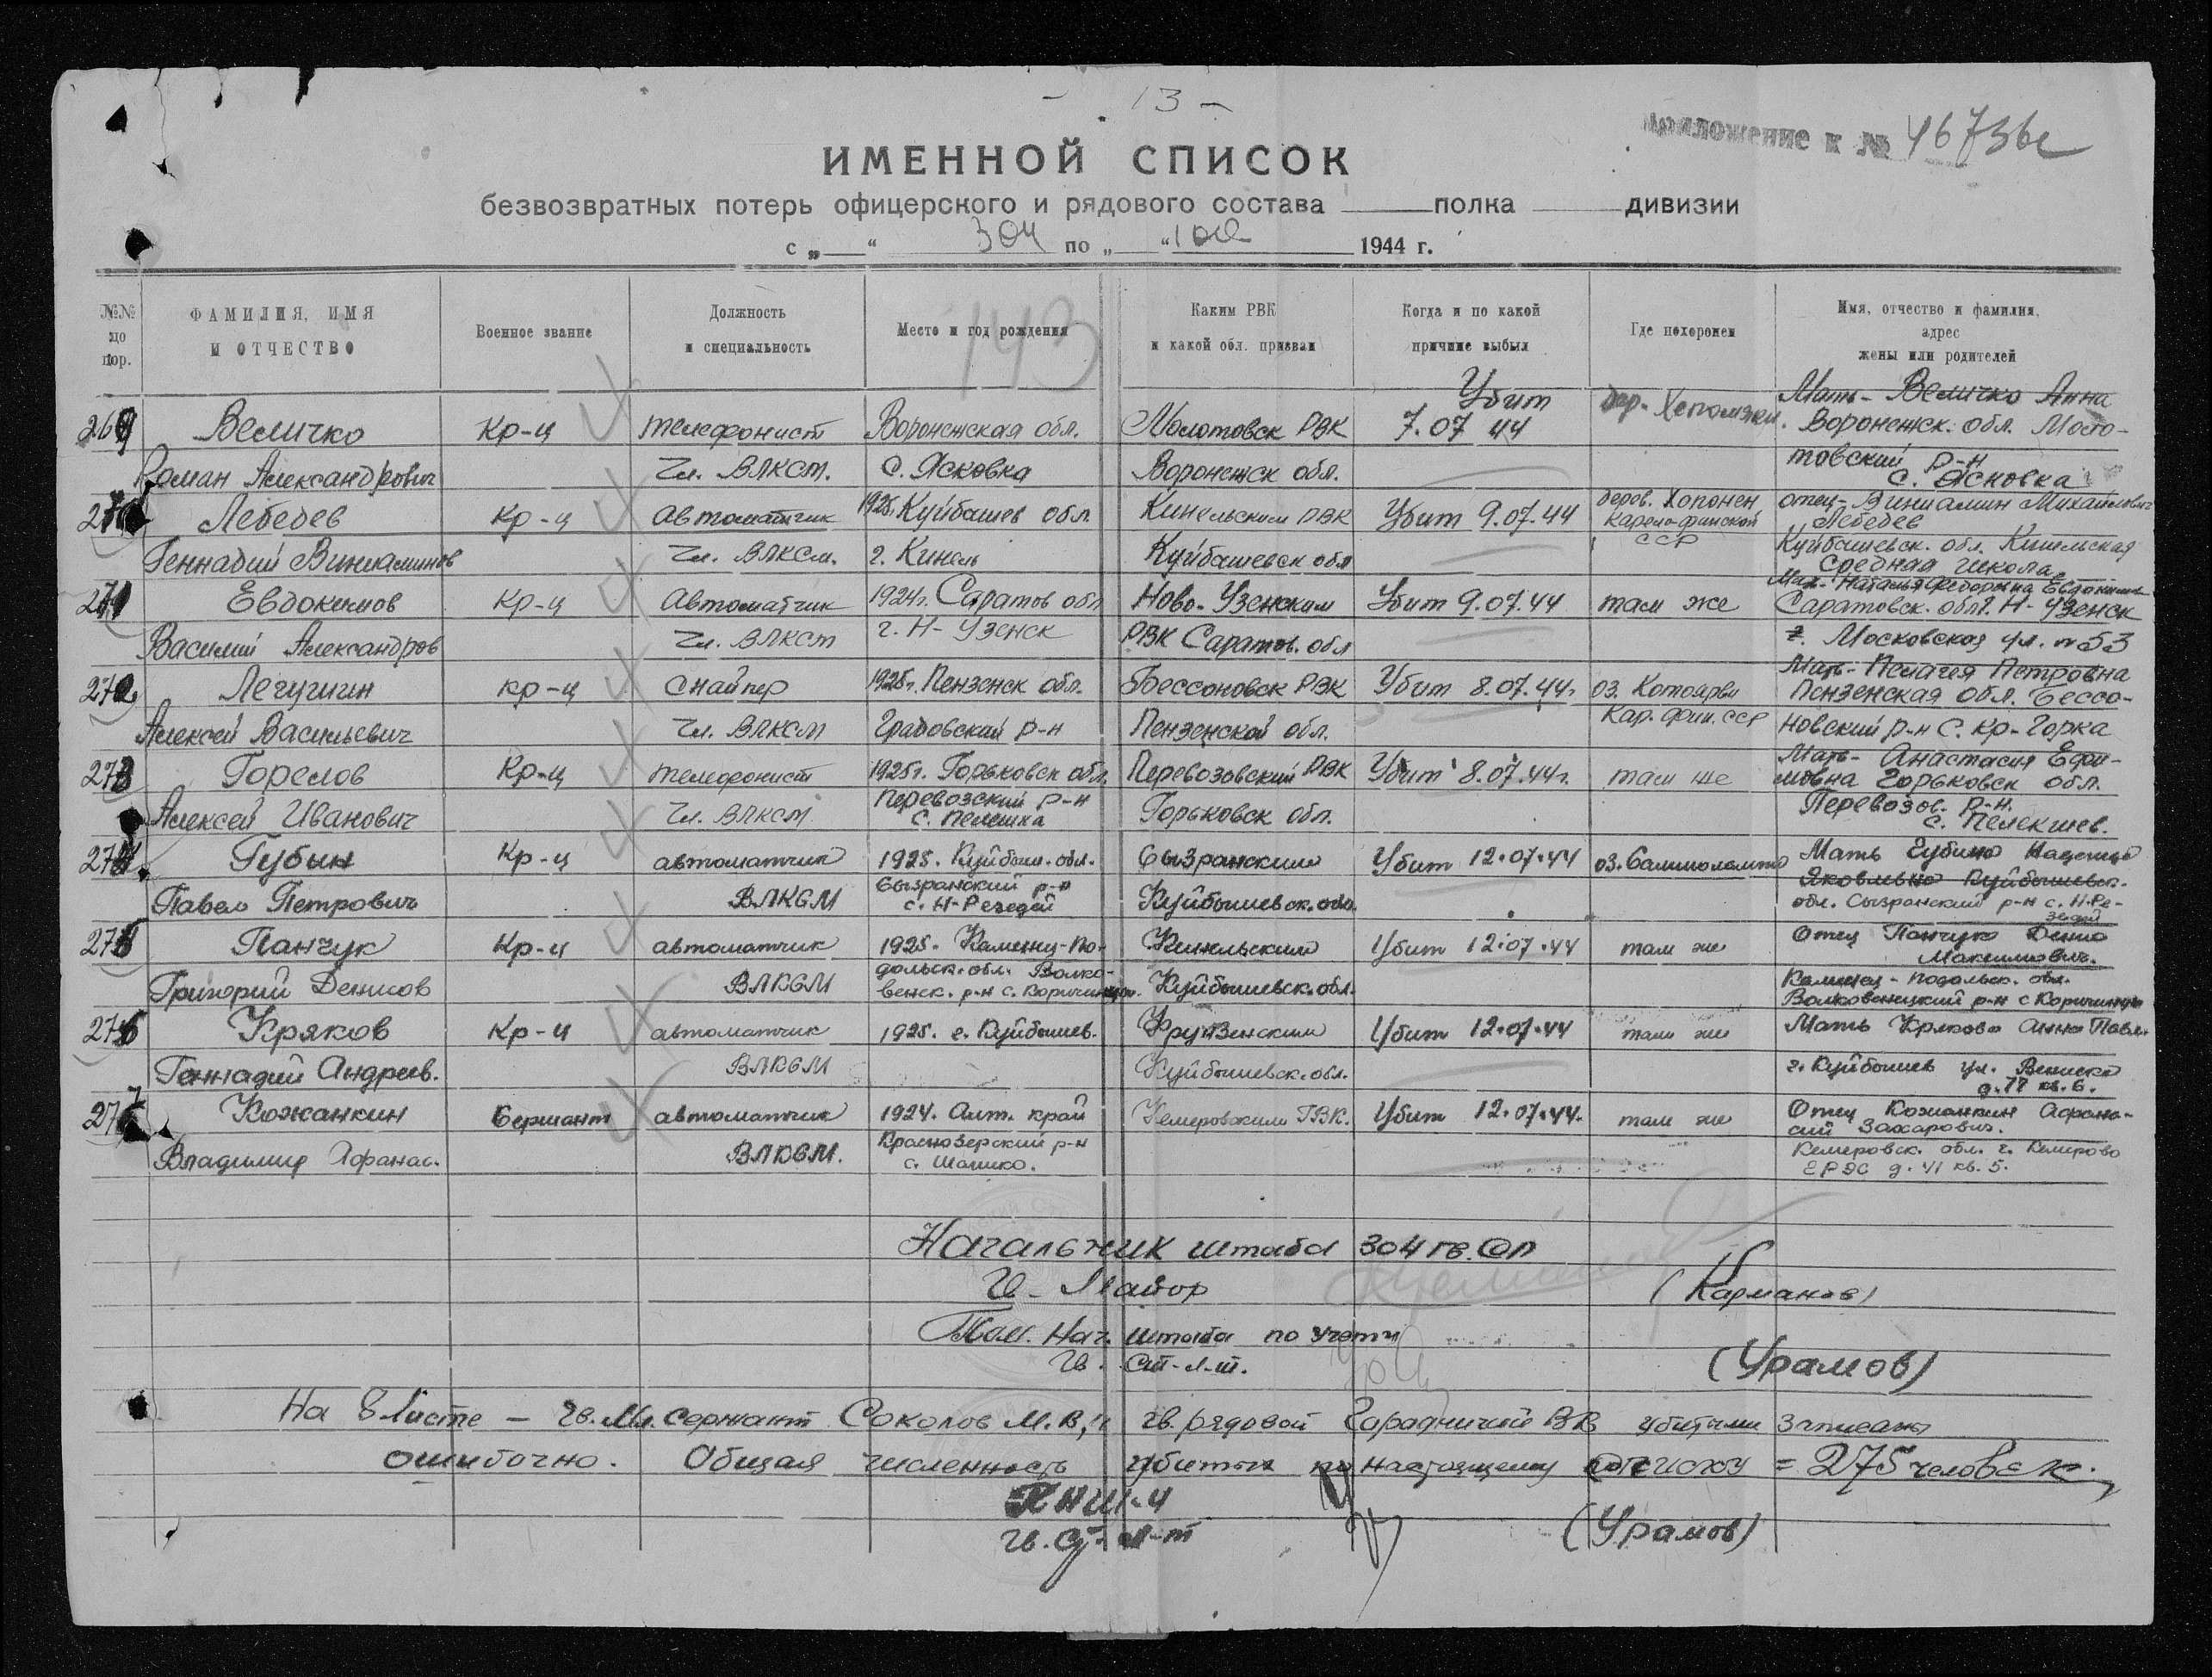 - 13 -
Приложение к № 46736с
ИМЕННОЙ СПИСОК
безвозвратных потерь офицерского и рядового состава полка дивизии
с „ “ 304 по „ “ 100 1944 г.
№№ по пор.
ФАМИЛИЯ, ИМЯ И ОТЧЕСТВО
Военное звание
Должность и специальность
Место и год рождения
143
Каким РВК и какой обл. призван
Когда и по какой причине выбыл
Где похоронен
Имя, отчество и фамилия, адрес жены или родителей
Убит Мать - Величко Анна
269 Величко Кр-ц телефонист Воронежская обл. Молотовск РВК 7.07 44 дер. Воронежск. обл. Моло-
Роман Александрович Чл. ВЛКСМ. с. Ясковка Воронежск обл. товский р-н
с. Ясковка
270 Лебедев Кр-ц Автоматчик 1925. Куйбышев обл. Кинельским РВК Убит 9.07.44 дерев. Хопонен отец - Виниамин Михайлович
Карело-финской Лебедев
ССР
Геннадий Виниаминов Чл. ВЛКСМ. г. Кинель Куйбашевск обл Куйбашевск. обл. Кинельская
средная школа
271 Евдокимов Кр-ц Автоматчик 1924г. Саратов обл Ново-Узенским Убит 9.07.44 там же Мат- Наталья Федоровна Евдокимов
Саратовск. обл г. Н-Узенск
Василий Александров Чл. ВЛКСМ г. Н-Узенск РВК Саратов. обл Московская ул. №53
272 Лечугин кр-ц снайпер 1925г. Пензенск обл. Бессоновск РВК Убит 8.07.44г. оз. Котоярви Мать- Пелагея Петровна
Пензенская обл. Бессо-
Алексей Васильевич Чл. ВЛКСМ Градовский р-н Пензенской обл. Кар. фин. ССР новский р-н с. Кр-Горка
273 Горелов Кр-ц телефонист 1925г. Горьковск обл. Перевозовский РВК Убит 8.07.44г. там же Мать- Анастасия Ефи-
мовна Горьковск обл.
Алексей Иванович Чл. ВЛКСМ Перевозский р-н Горьковск обл. Перевозов. р-н.
с. Пелешка с. Пелекшев.
274 Губин Кр-ц автоматчик 1925. Куйбыш. обл. Сызранским Убит 12.07.44 оз. Мать Губина Надежда
Яковлевна Куйбышевск.
Павел Петрович ВЛКСМ Сызранский р-н Куйбышевск. обл. обл. Сызранский р-н с. Н-Ре-
с. Н-Резедей
275 Панчук Кр-ц автоматчик 1925. Каменец-По- Кинельским Убит 12.07.44 там же Отец Панчук Денис
Максимович.
Григорий Денисов ВЛКСМ дольск. обл. Волко- Куйбышевск. обл. Каменец-Подольск. обл.
венск. р-н с. Волковенецкий р-н с
276 Кряков Кр-ц автоматчик 1925. г. Куйбышев. Фрунзенским Убит 12.07.44 там же Мать Крякова Анна Павл.
Геннадий Андреев. ВЛКСМ Куйбышевск. обл. г. Куйбышев ул.
д. 77 кв. 6.
277 Кожанкин Сержант автоматчик 1924. Алт. край Кемеровским ГВК. Убит 12.07.44. там же Отец Кожанкин Афана-
сий Захарович.
Владимир Афанас. ВЛКСМ. Краснозерский р-н Кемеровск. обл. г. Кемерово
с. ГРЭС д. 41 кв. 5.
Начальник штаба 304 гв. СП
Гв. Майор (Карманов)
Пом. Нач. штаба по учету
Гв. Ст-л-т. (Урамов)
На 8 листе - гв. мл. сержант Соколов М.В, и гв. рядовой ВВ убитыми записаны
ошибочно. Общая численность убитых по настоящему списку = 275 человек.
ПНШ-4
гв. ст. л-т (Урамов)